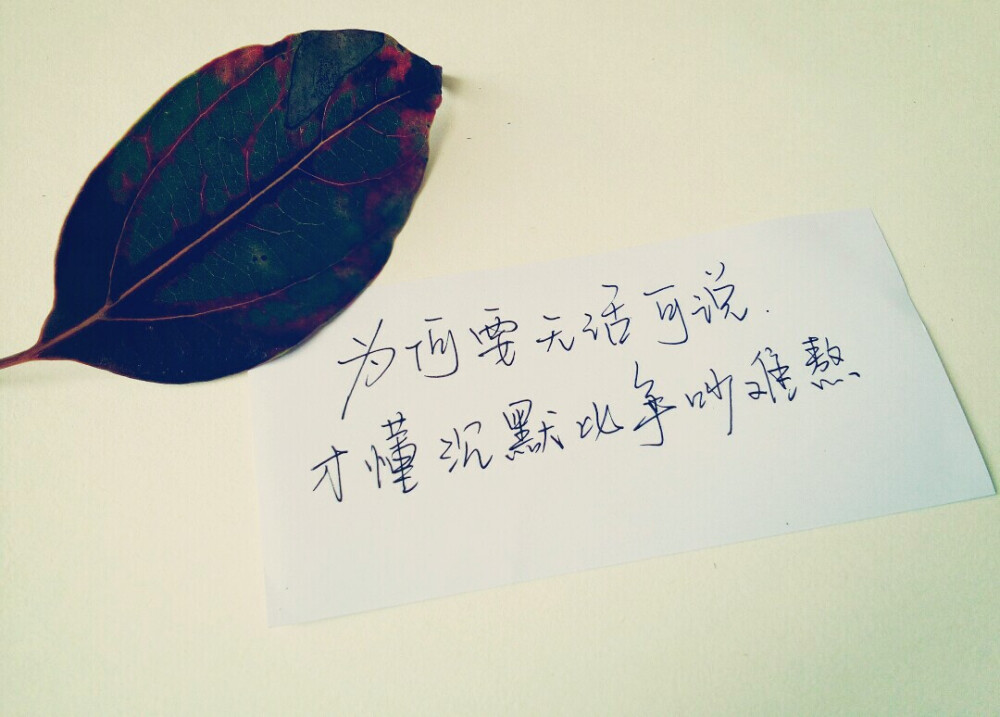 为何要无话可说.
才懂沉默比争吵难熬